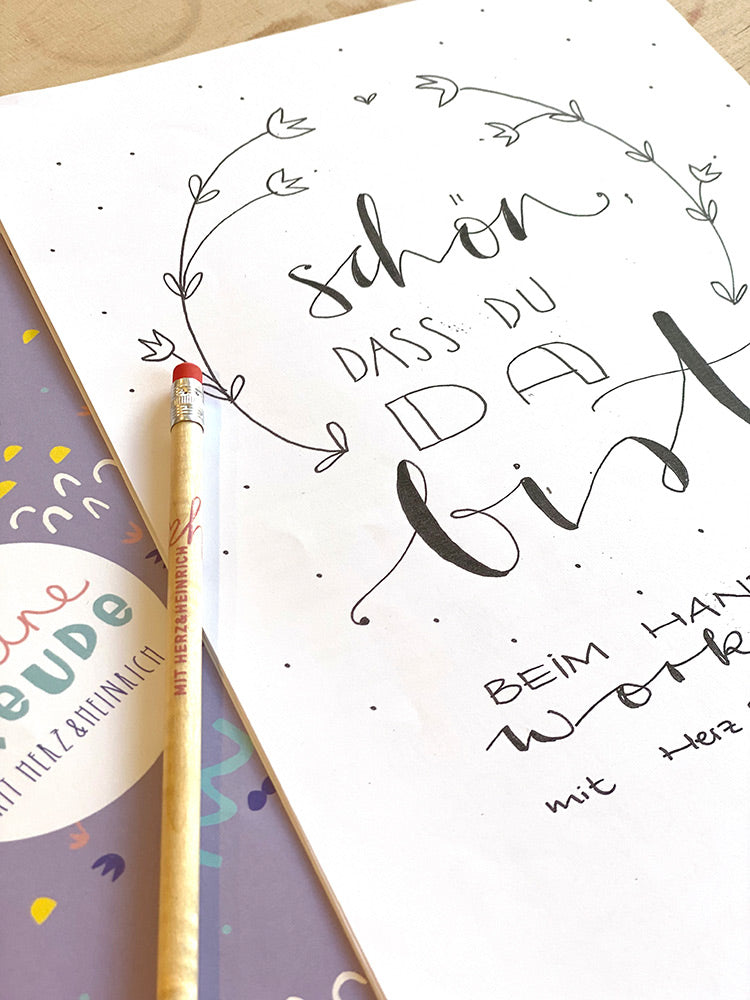 schön,
DASS DU
DA
bist
BEIM HAN
work
mit Herz
MIT HERZ&HEINRICH
EUDE
MIT HERZ&HEINRICH